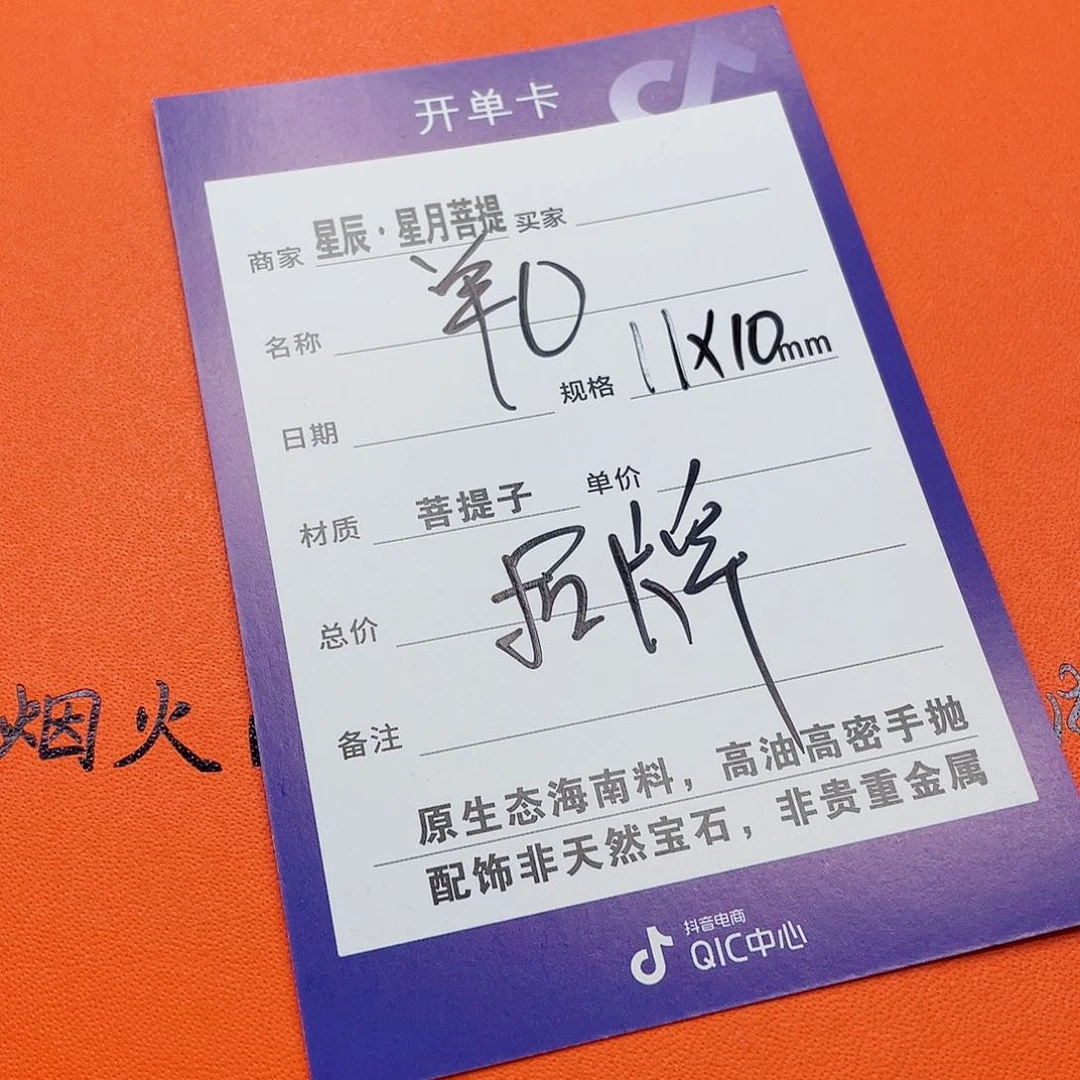 开单卡
商家 星辰·星月菩提 买家
名称 单0
日期 规格 11X10mm
材质 菩提子 单价
总价 后牌
备注
原生态海南料，高油高密手抛
配饰非天然宝石，非贵重金属
抖音电商
QIC中心
烟火